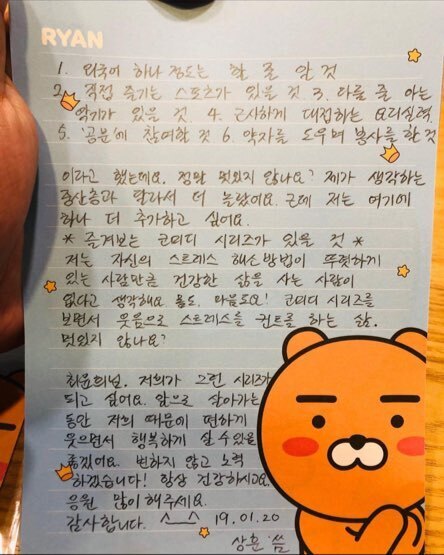 RYAN
1. 외국어 하나 정도는 할 줄 알 것
2. 직접 즐기는 스포츠가 있을 것 3. 다룰 줄 아는
악기가 있을 것 4. 근사하게 대접하는 요리실력
5. '공분'에 참여할 것 6. 약자를 도우며 봉사를 할 것
이라고 했는데요. 정말 멋있지 않나요? 제가 생각하는
중산층과 달라서 더 놀랐어요. 근데 저는 여기에
하나 더 추가하고 싶어요.
* 즐겨보는 코미디 시리즈가 있을 것 *
저는 자신의 스트레스 해소방법이 뚜렷하게
있는 사람만큼 건강한 삶을 사는 사람이
없다고 생각해요 몸도, 마음도요! 코미디 시리즈를
보면서 웃음으로 스트레스를 컨트롤 하는 삶.
멋있지 않나요?
최윤희님. 저희가 그런 시리즈가
되고 싶어요. 앞으로 살아가는
동안 저희 때문에 편하게
웃으면서 행복하게 살 수 있음
좋겠어요. 변하지 않고 노력
하겠습니다! 항상 건강하시고요
응원 많이 해주세요
감사합니다. 19.01.20
상훈 씀